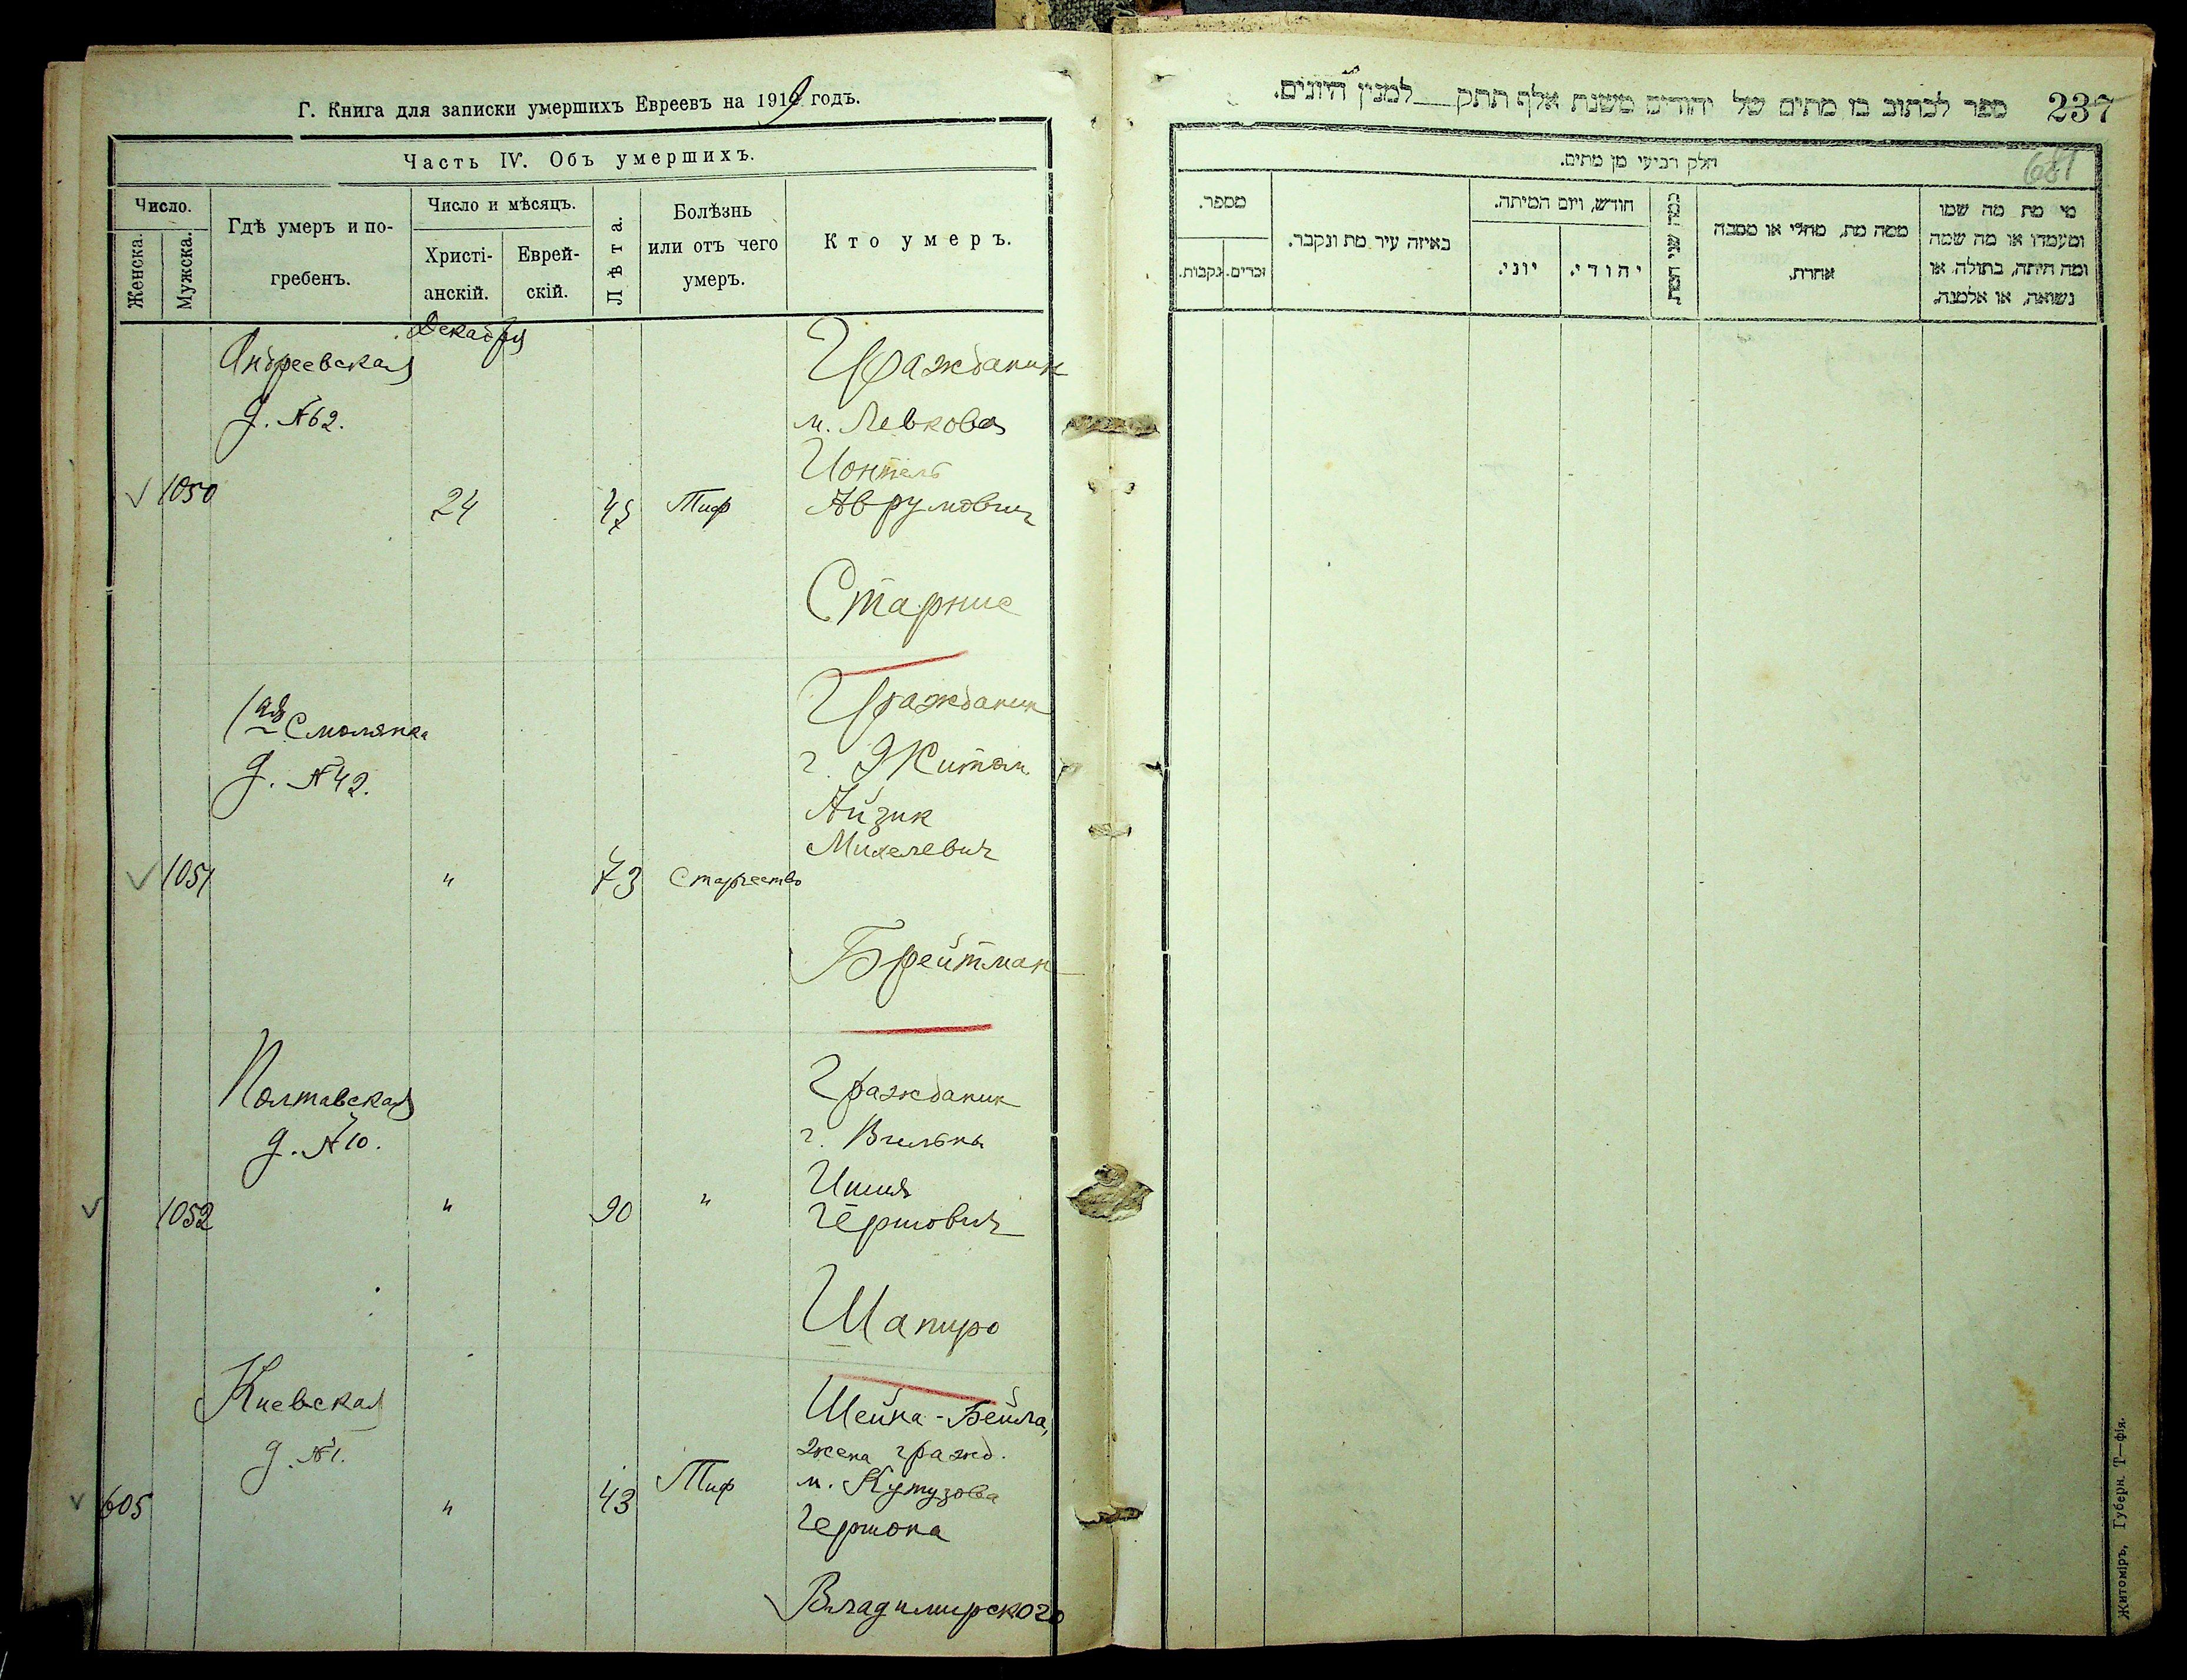 Г. Книга для записки умершихъ Евреевъ на 1919 годъ.
Часть IV. Объ умершихъ.
Число.
Женска.
Мужска.
Гдѣ умеръ и по-
гребенъ.
Число и мѣсяцъ.
Христі-
анскій.
Еврей-
скій.
Лѣта.
Болѣзнь
или отъ чего
умеръ.
Кто умеръ.
Декабря
Андреевская
д. №62.
Гражданин
м. Левкова
Аврумович
1050
24
Тиф
Старнис
Смолянка
д. №42.
Гражданин
г. Житом.
Айзик
Михелевич
1051
"
73
Старчество
Брейтман
Полтавская
д. №10.
Гражданин
г. Вильны
Гершович
1052
"
90
"
Шапиро
Киевская
д. №1.
Шейна-Бейла,
жена гражд.
м. Кутузова
Гершона
605
"
43
Тиф
Владимирского
ספר לכתוב בו מתים של יהודים משנת אלף תתק__למנין היונים.
237
681
חלק רביעי מן מתים.
מספר.
נקבות.
זכרים.
באיזה עיר מת ונקבר.
חודש, ויום המיתה.
יוני.
יהודי.
כמה שני המת
ממה מת, מחלי או מסבה
אחרת.
מי מת מה שמו
ומעמדו או מה שמה
ומה היתה, בתולה או
נשואה, או אלמנה.
Житоміръ, Губерн. Т—фія.